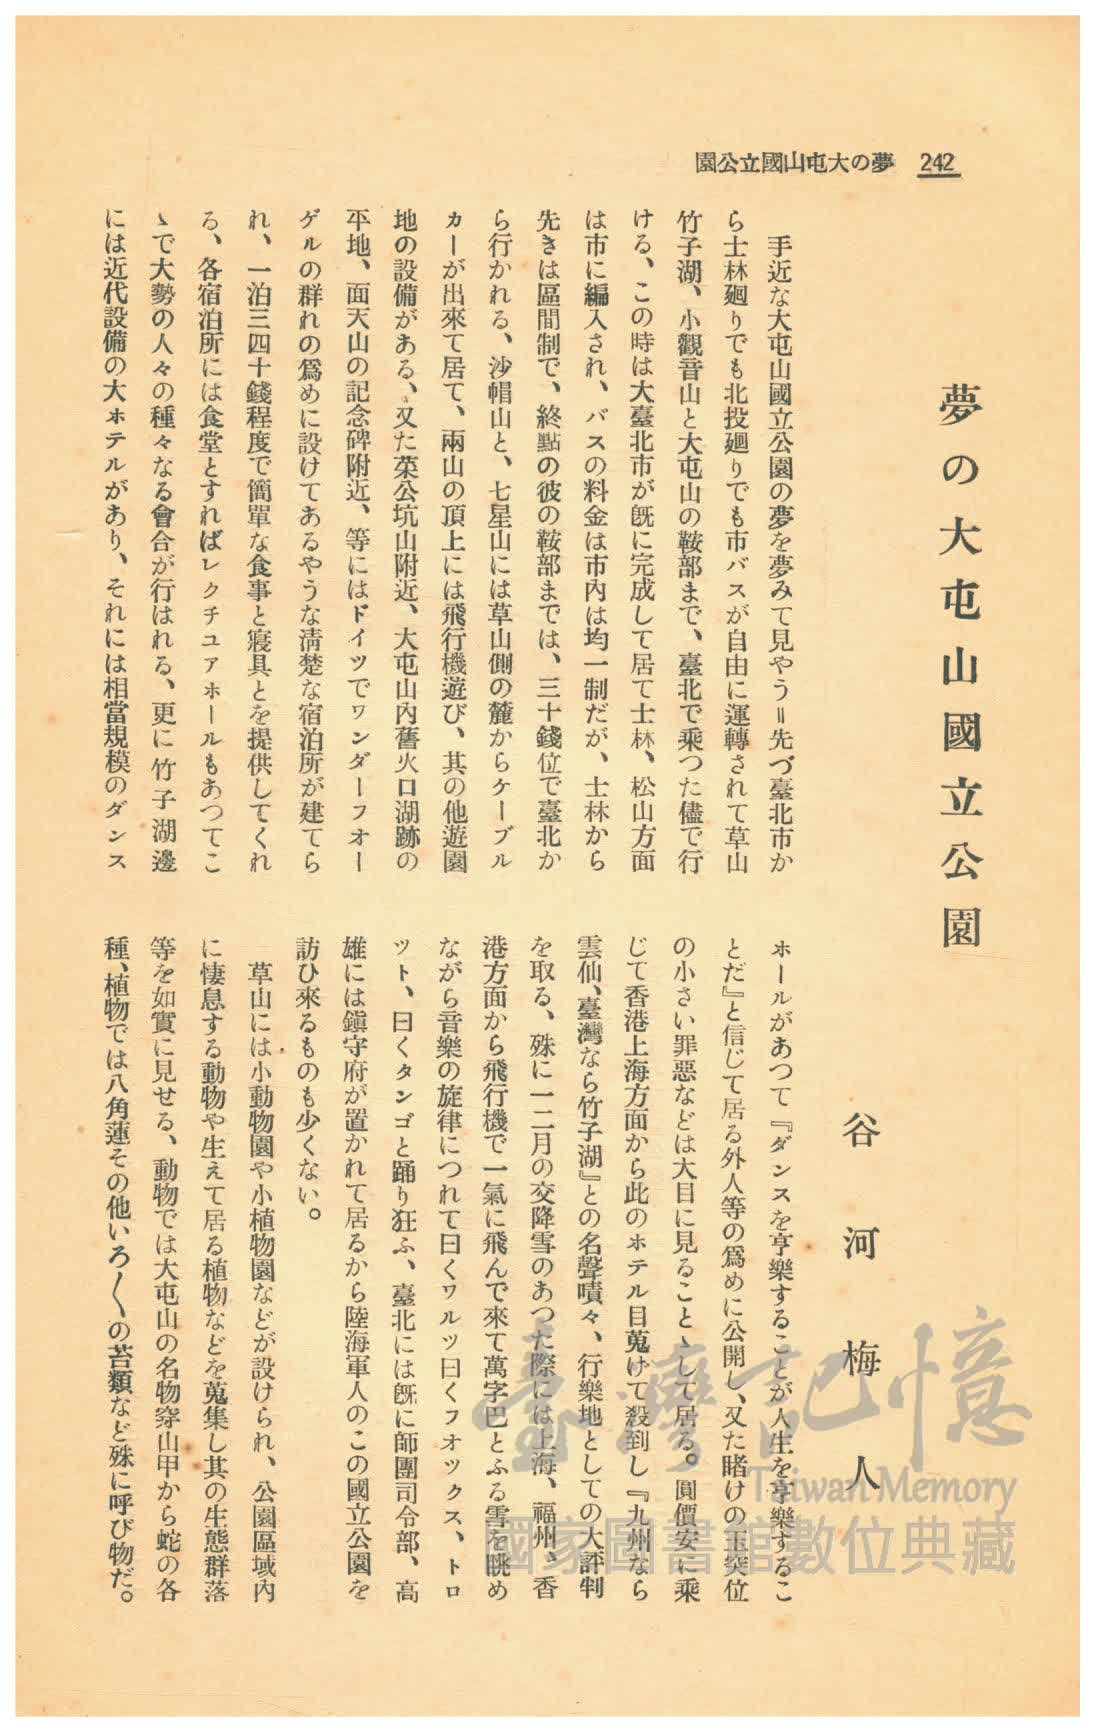 242 夢の大屯山國立公園
夢の大屯山國立公園
谷河梅人
手近な大屯山國立公園の夢を夢みて見やう＝先づ臺北市か
ら士林廻りでも北投廻りでも市バスが自由に運轉されて草山
竹子湖、小觀音山と大屯山の鞍部まで、臺北で乘つた儘で行
ける、この時は大臺北市が既に完成して居て士林、松山方面
は市に編入され、バスの料金は市內は均一制だが、士林から
先きは區間制で、終點の彼の鞍部までは、三十錢位で臺北か
ら行かれる、沙帽山と、七星山には草山側の麓からケーブル
カーが出來て居て、兩山の頂上には飛行機遊び、其の他遊園
地の設備がある、又た菜公坑山附近、大屯山內舊火口湖跡の
平地、面天山の記念碑附近、等にはドイツでワンダーフオー
ゲルの群れの爲めに設けてあるやうな淸楚な宿泊所が建てら
れ、一泊三四十錢程度で簡單な食事と寢具とを提供してくれ
る、各宿泊所には食堂とすればレクチユアホールもあつてこ
ゝで大勢の人々の種々なる會合が行はれる、更に竹子湖邊
には近代設備の大ホテルがあり、それには相當規模のダンス
ホールがあつて『ダンスを亨樂することが人生を亨樂するこ
とだ』と信じて居る外人等の爲めに公開し、又た賭けの玉突位
の小さい罪惡などは大目に見ることゝして居る。圓價安に乘
じて香港上海方面から此のホテル目蒐けて殺到し『九州なら
雲仙、臺灣なら竹子湖』との名聲嘖々、行樂地としての大評判
を取る、殊に一二月の交降雪のあつた際には上海、福州さ香
港方面から飛行機で一氣に飛んで來て萬字巴とふる雪を眺め
ながら音樂の旋律につれて曰くワルツ曰くフオツクス、トロ
ツト、曰くタンゴと踊り狂ふ、臺北には既に師團司令部、高
雄には鎭守府が置かれて居るから陸海軍人のこの國立公園を
訪ひ來るものも少くない。
草山には小動物園や小植物園などが設けられ、公園區域內
に悽息する動物や生えて居る植物などを蒐集し其の生態群落
等を如實に見せる、動物では大屯山の名物穿山甲から蛇の各
種、植物では八角蓮その他いろ〱の苔類など殊に呼び物だ。
臺灣記憶
Taiwan Memory
國家圖書館數位典藏